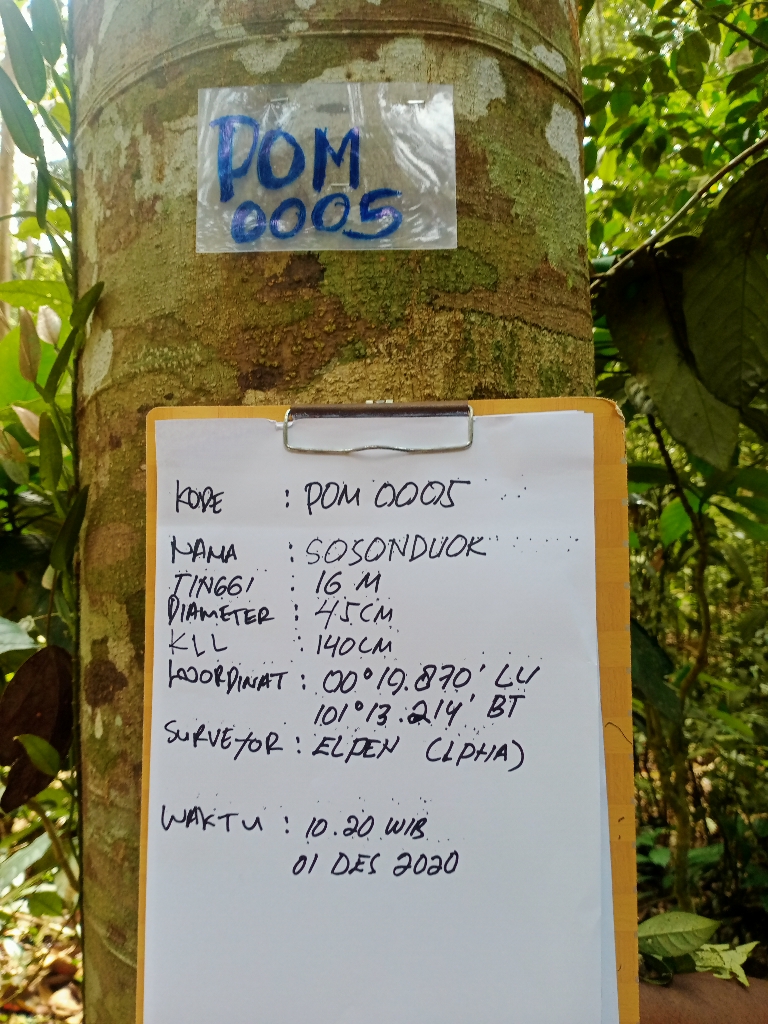 POM
0005
KODE : POM 0005
NAMA : SOSONDUOK
TINGGI : 16 M
DIAMETER : 45 CM
KLL : 140 CM
KOORDINAT : 00° 19.870' LU
101° 13.214' BT
SURVEYOR : ELPEN (LPHA)
WAKTU : 10.20 WIB
01 DES 2020